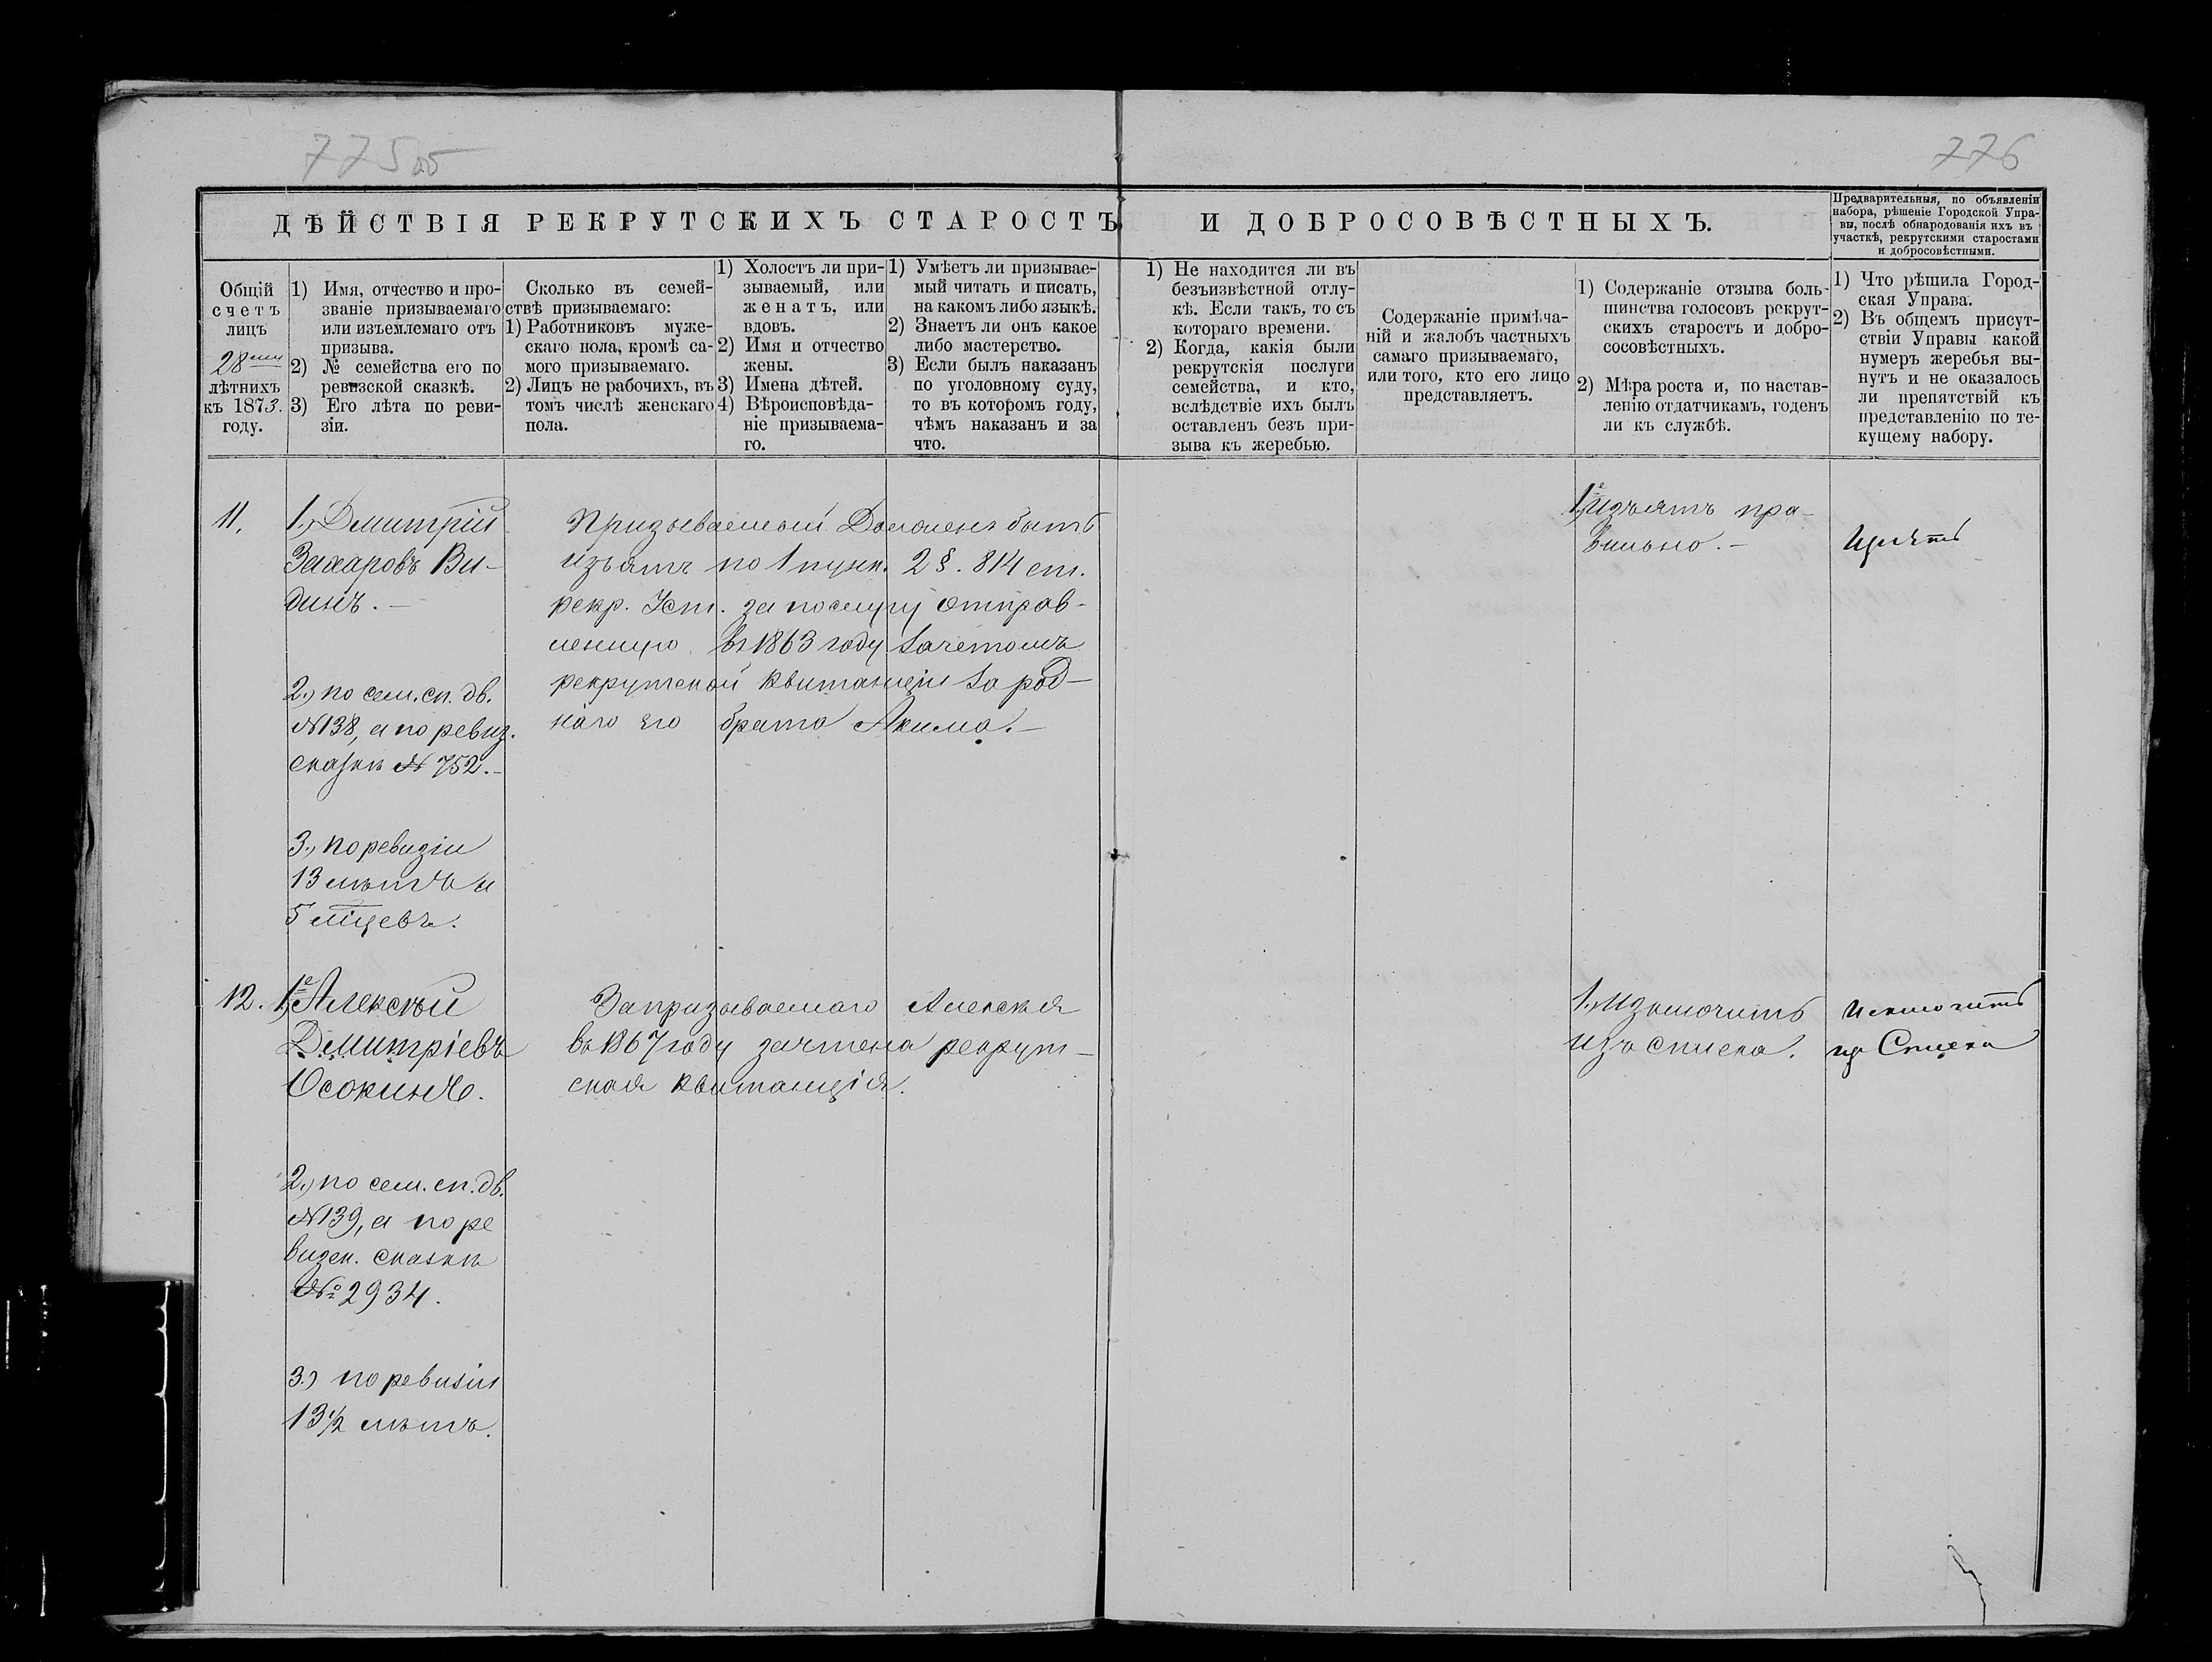 775об
776
ДѢЙСТВІЯ РЕКРУТСКИХЪ СТАРОСТЪ И ДОБРОСОВѢСТНЫХЪ.
Предварительныя, по объявленіи
набора, рѣшеніе Городской Упра-
вы, послѣ обнародованія ихъ въ
участкѣ, рекрутскими старостами
и добросовѣстными.
Общій
счетъ
лицъ
28ми
лѣтнихъ
къ 1873.
году.
1) Имя, отчество и про-
званіе призываемаго
или изъемлемаго отъ
призыва.
2) № семейства его по
ревизской сказкѣ.
3) Его лѣта по реви-
зіи.
Сколько въ семей-
ствѣ призываемаго:
1) Работниковъ муже-
скаго пола, кромѣ са-
мого призываемаго.
2) Лицъ не рабочихъ, въ
томъ числѣ женскаго
пола.
1) Холостъ ли при-
зываемый, или
женатъ, или
вдовъ.
2) Имя и отчество
жены.
3) Имена дѣтей.
4) Вѣроисповѣда-
ніе призываема-
го.
1) Умѣетъ ли призывае-
мый читать и писать,
на какомъ либо языкѣ.
2) Знаетъ ли онъ какое
либо мастерство.
3) Если былъ наказанъ
по уголовному суду,
то въ которомъ году,
чѣмъ наказанъ и за
что.
1) Не находится ли въ
безъизвѣстной отлу-
кѣ. Если такъ, то съ
котораго времени.
2) Когда, какія были
рекрутскія послуги
семейства, и кто,
вслѣдствіе ихъ былъ
оставленъ безъ при-
зыва къ жеребью.
Содержаніе примѣча-
ній и жалобъ частныхъ
самаго призываемаго,
или того, кто его лицо
представляетъ.
1) Содержаніе отзыва боль-
шинства голосовъ рекрут-
скихъ старостъ и добро-
сосовѣстныхъ.
2) Мѣра роста и, по настав-
ленію отдатчикамъ, годенъ
ли къ службѣ.
1) Что рѣшила Город-
ская Управа.
2) Въ общемъ присут-
ствіи Управы какой
нумеръ жеребья вы-
нутъ и не оказалось
ли препятствій къ
представленію по те-
кущему набору.
11.
1.) Дмитрій
Захаровъ Ви-
динъ. —
2.) по сем. сп. дв.
№138, а по ревиз.
сказкѣ № 752. –
3.) по ревизіи
13 лѣтъ и
5 мѣцевъ.
Призываемый Долженъ быть
изъятъ по 1 пунк. 2 §. 814 ст.
рекр. Уст. за послугу отправ-
ленную въ 1863 году зачетомъ
рекрутской квитанціи за род-
наго его брата Акима. —
1е) Изъятъ пра-
вильно. –
Изъять
12.
1е) Алексѣй
Дмитріевъ
Осокинъ.
2.) по сем. сп. дв.
№139, а по ре
визск. сказкѣ
№ 2934.
3.) по ревизіи
13 1/2 лѣтъ.
За призываемаго Алексѣя
въ 1867 году зачтена рекрут-
ская квитанція.
1.) Изключить
изъ списка.
Исключить
изъ Списка